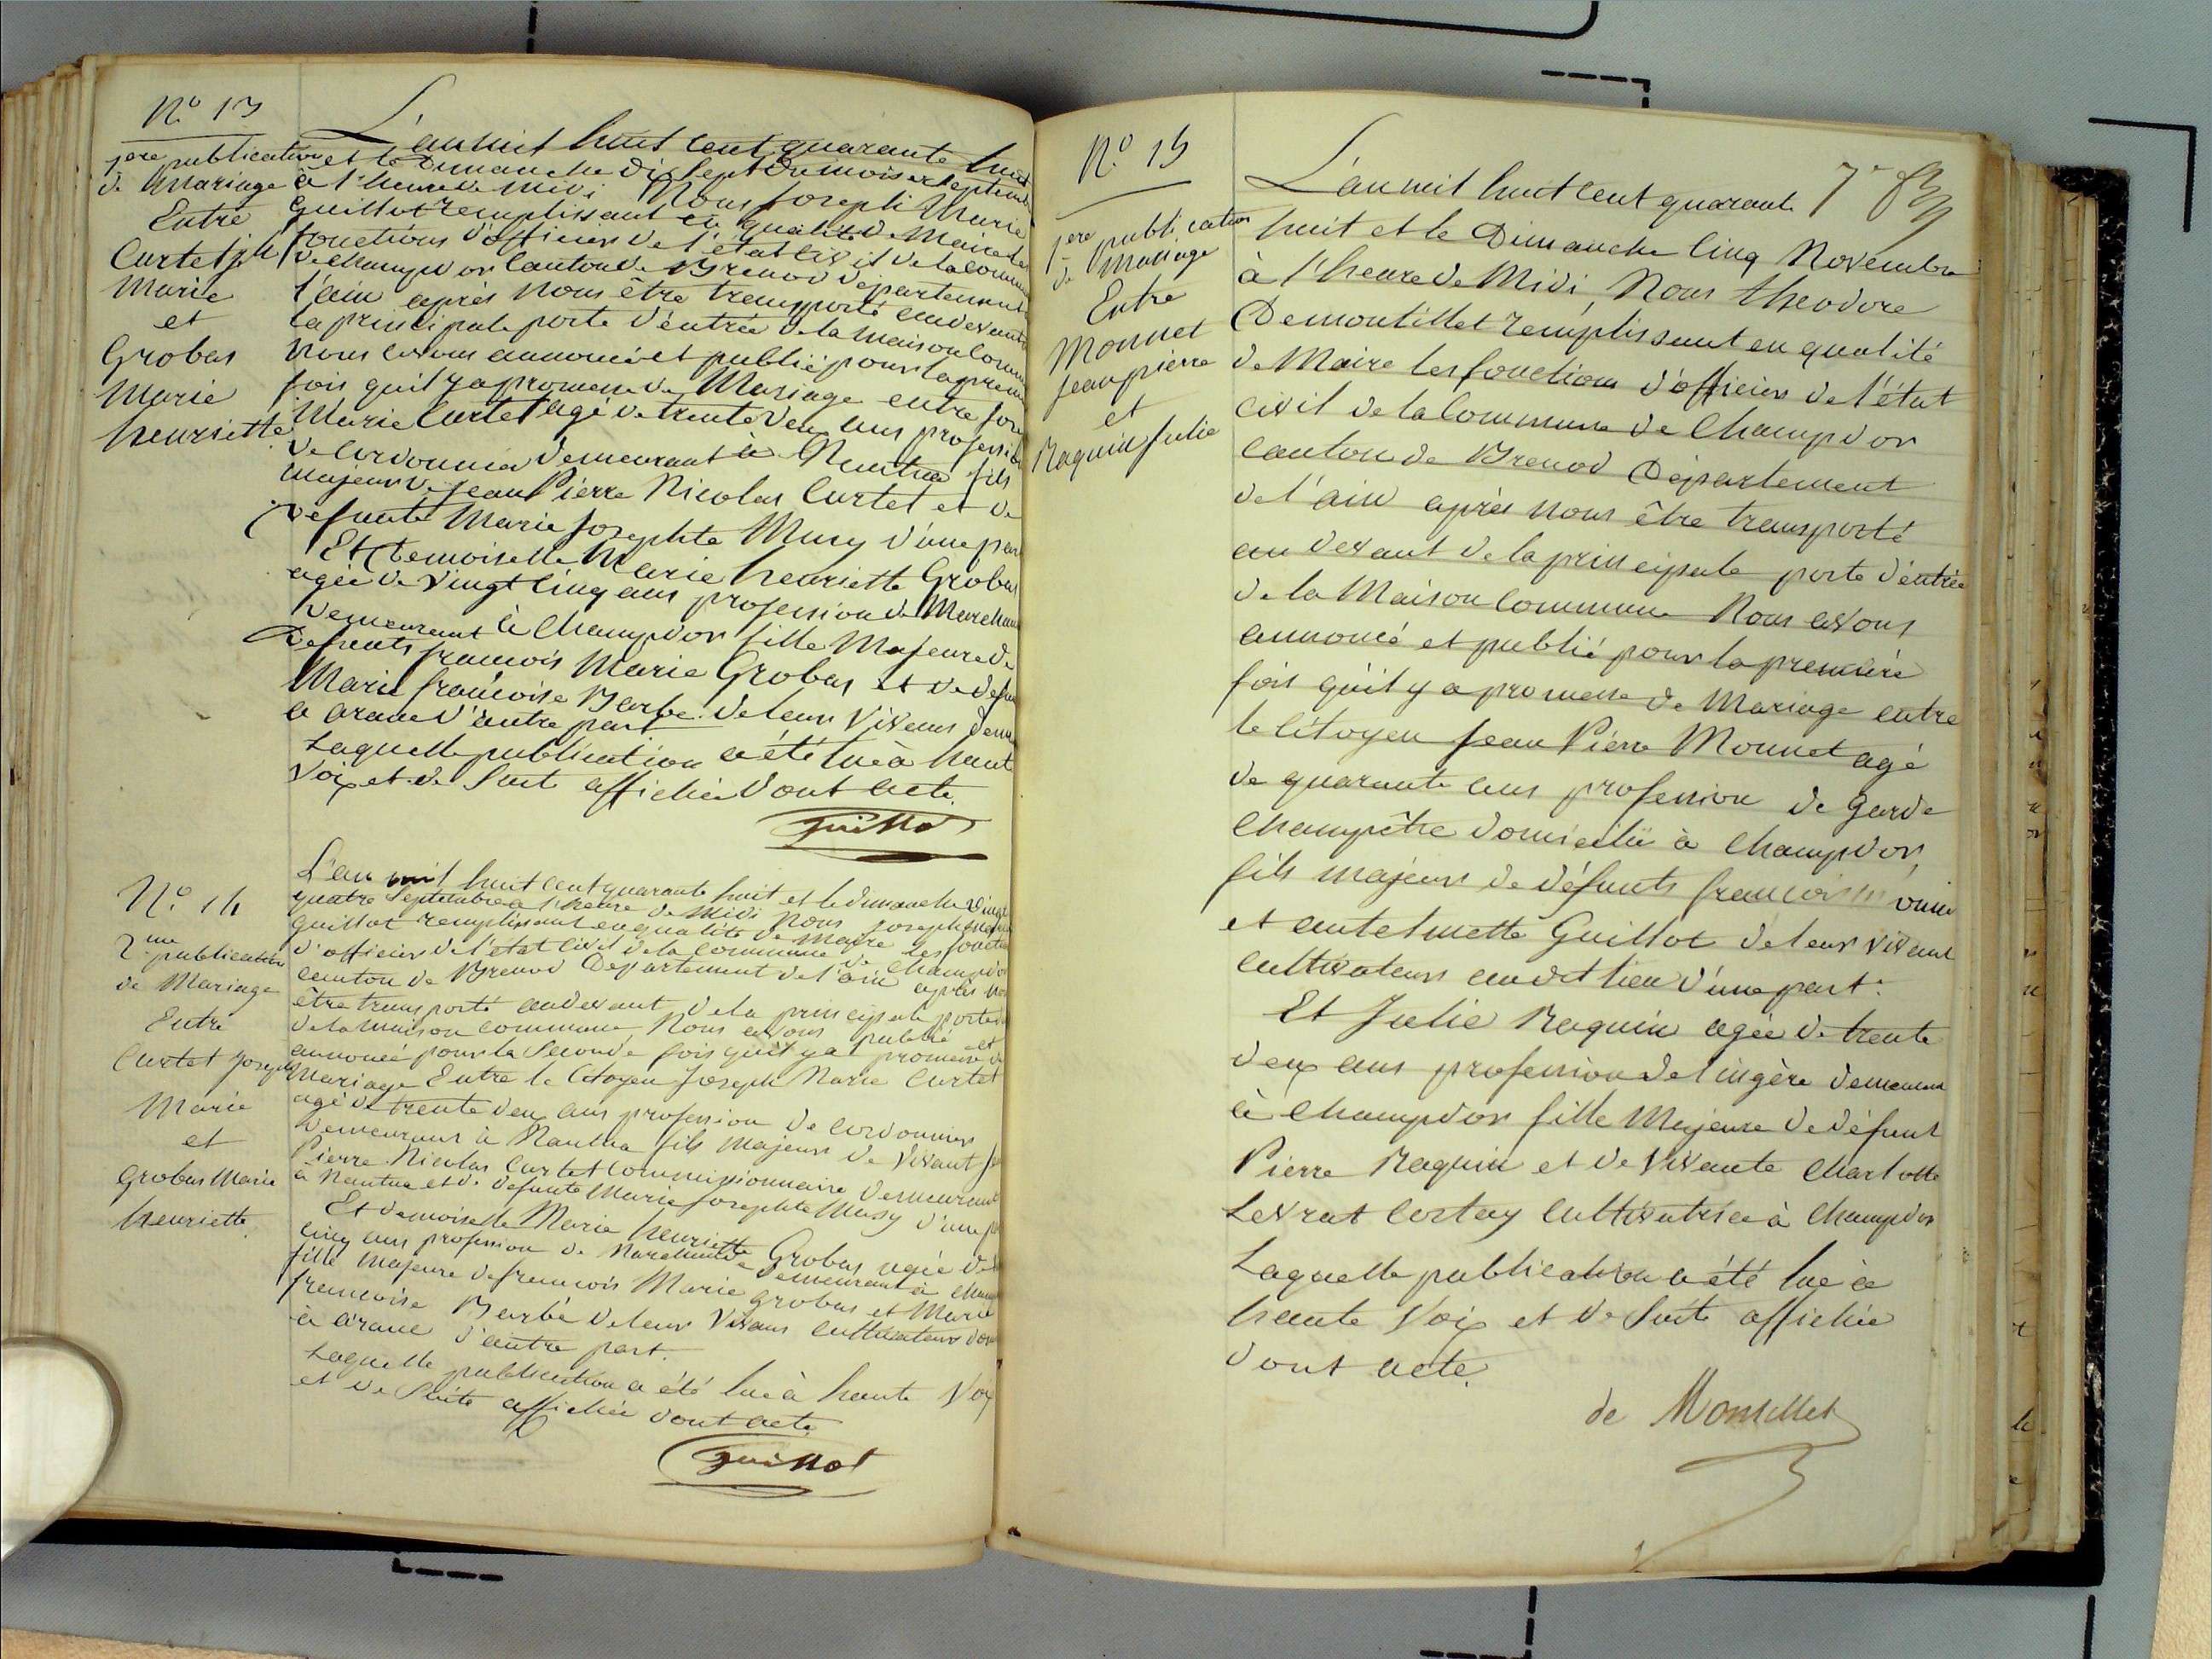 N.o 13
1ere publication
de Mariage
Entre
Curtet jh
Marie
et
Grobas
Marie
henriette
L'an mil huit cent quarante huit
et le Dimanche dix sept du mois de septembre
à l'heure de midi Nous Joseph Marie
Guillot remplissant en qualité de Maire les
fonctions d'officier de l'état civil de la commune
de Champdor Canton de Brenod département de
l'ain après nous être transporté au devant de
la principale porte d'entrée de la maison Commune
Nous avons annoncé et publié pour la première
fois quil y a promesse de Mariage entre Joseph
Marie Curtet agé de trente deux ans profession
de Cordonnier demeurant à Nantua fils
majeur de Jean Pierre Nicolas Curtet et de
defunte Marie Josephte Musy d'une part
Et Demoiselle Marie henriette Grobas
agée de vingt cinq ans profession de Marchande
demeurant à Champdor fille Majeure de
Defunts francois Marie Grobas et de defunte
Marie francoise Barbe de leur vivans
a d'autre part
Laquelle publication a été lue à haute
Voix et de Suite affichée dont acte.
Guillot
N.o 14
2me publication
de Mariage
Entre
Curtet Joseph
Marie
et
Grobas Marie
henriette.
L'an mil huit cent quarante huit et le dimanche vingt
quatre Septembre à l'heure de Midi Nous joseph marie
Guillot remplissant en qualité de Maire les fonctions
d'officier de l'état civil de la commune de Champdor
canton de Brenod Département de l'ain après nous
être transporté au devant de la principale porte
de la maison commune, Nous avons publié et
annoncé pour la Seconde fois quil y a promesse de
Mariage Entre le Citoyen Joseph Marie Curtet
agé de trente deux ans profession de Cordonnier
demeurant à Nantua fils majeur de Vivant jean
Pierre Nicolas Curtet Commissionnaire demeurant
à Nantua et de defunte Marie Josephte Musy d'une part
Et demoiselle Marie henriette Grobas agée de
cinq ans profession de Marchande demeurant à
fille majeure de francois Marie grobas et Marie
francoise Barbe de leur vivans cultivateurs
à d'autre part.
Laquelle publication a été lue à haute Voix
et de Suite affichée dont acte
Guillot
N.o 15
1ere publication
de Mariage
Entre
Monnet
jean pierre
et
Raquin Julie
L'an mil huit cent quarante
huit et le Dimanche Cinq Novembre
à l'heure de Midi, Nous theodore
Demontillet remplissant en qualité
de Maire les fonctions d'officier de l'état
civil de la Commune de Champdor
Canton de Brenod Département
de l'ain après nous être transporté
au devant de la principale porte d'entrée
de la Maison Commune Nous avons
annoncé et publié pour la première
fois quil y a promesse de Mariage entre
le Citoyen Jean Pierre Monnet agé
de quarante ans profession de garde
Champêtre domicilié à Champdor,
fils majeur de défunts francois
et antelmette Guillot de leur vivant
cultivateurs audit lieu d'une part.
Et Julie Raquin agée de trente
deux ans profession de lingère demeurant
à Champdor fille Majeure de défunt
Pierre Raquin et de Vivante Charlotte
Levrat Cortay Cultivatrice à Champdor
Laquelle publication a été lue à
haute Voix et de Suite affichée
dont acte.
de Montillet